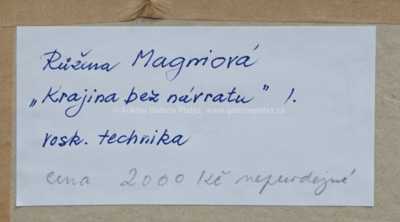 Růžena Magniová
„Krajina bez návratu" I.
vosk. technika
cena 2000 Kč neprodejné